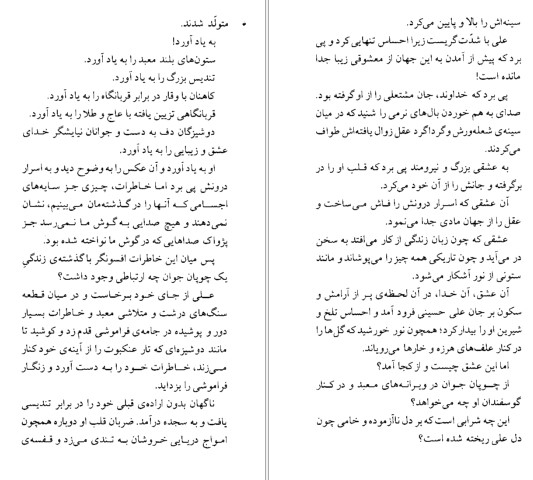 متولّد شدند.
به یاد آورد!
ستون‌های بلند معبد را به یاد آورد.
تندیس بزرگ را به یاد آورد.
کاهنان با وقار در برابر قربانگاه را به یاد آورد.
قربانگاهی تزیین یافته با عاج و طلا را به یاد آورد.
دوشیزگان دف به دست و جوانان نیایشگر خدای
عشق و زیبایی را به یاد آورد.
او به یاد آورد و آن عکس را به وضوح دید و به اسرار
درونش پی برد اما خاطرات، چیزی جز سایه‌های
اجسامی که آنها را در گذشته‌مان می‌بینیم، نشان
نمی‌دهند و هیچ صدایی به گوش ما نمی‌رسد جز
پژواک صداهایی که در گوش ما نواخته شده بود.
پس میان این خاطرات افسونگر با گذشته‌ی زندگیِ
یک چوپان جوان چه ارتباطی وجود داشت؟
علی از جای خود برخاست و در میان قطعه
سنگ‌های درشت و متلاشی معبد و خاطرات بسیار
دور و پوشیده در جامه‌ی فراموشی قدم زد و کوشید تا
مانند دوشیزه‌ای که تار عنکبوت را از آینه‌ی خود کنار
می‌زند، خاطرات خود را به دست آورد و زنگار
فراموشی را بزداید.
ناگهان بدون اراده‌ی قبلی خود را در برابر تندیسی
یافت و به سجده درآمد. ضربان قلب او دوباره همچون
امواج دریایی خروشان به تندی می‌زد و قفسه‌ی
سینه‌اش را بالا و پایین می‌کرد.
علی با شدّت گریست زیرا احساس تنهایی کرد و پی
برد که پیش از آمدن به این جهان از معشوقی زیبا جدا
مانده است!
پی برد که خداوند، جان مشتعلی را از او گرفته بود.
صدای به هم خوردن بال‌های نرمی را شنید که در میان
سینه‌ی شعله‌ورش و گرداگرد عقل زوال یافته‌اش طواف
می‌کردند.
به عشقی بزرگ و نیرومند پی برد که قلب او را در
برگرفته و جانش را از آن خود می‌کرد.
آن عشقی که اسرار درونش را فاش می‌ساخت و
عقل را از جهان مادی جدا می‌نمود.
عشقی که چون زبان زندگی از کار می‌افتد به سخن
در می‌آید و چون تاریکی همه چیز را می‌پوشاند و مانند
ستونی از نور آشکار می‌شود.
آن عشق، آن خدا، در آن لحظه‌ی پر از آرامش و
سکون بر جان علی حسینی فرود آمد و احساس تلخ و
شیرین او را بیدار کرد؛ همچون نور خورشید که گل‌ها را
در کنار علف‌های هرزه و خارها می‌رویاند.
اما این عشق چیست و از کجا آمد؟
از چوپان جوان در ویرانه‌های معبد و در کنار
گوسفندان او چه می‌خواهد؟
این چه شرابی است که بر دل ناآزموده و خامی چون
دل علی ریخته شده است؟